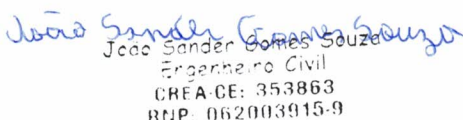 João Sander Gomes Souza
João Sander Gomes Souza
Engenheiro Civil
CREA-CE: 353863
RNP: 062003915-9